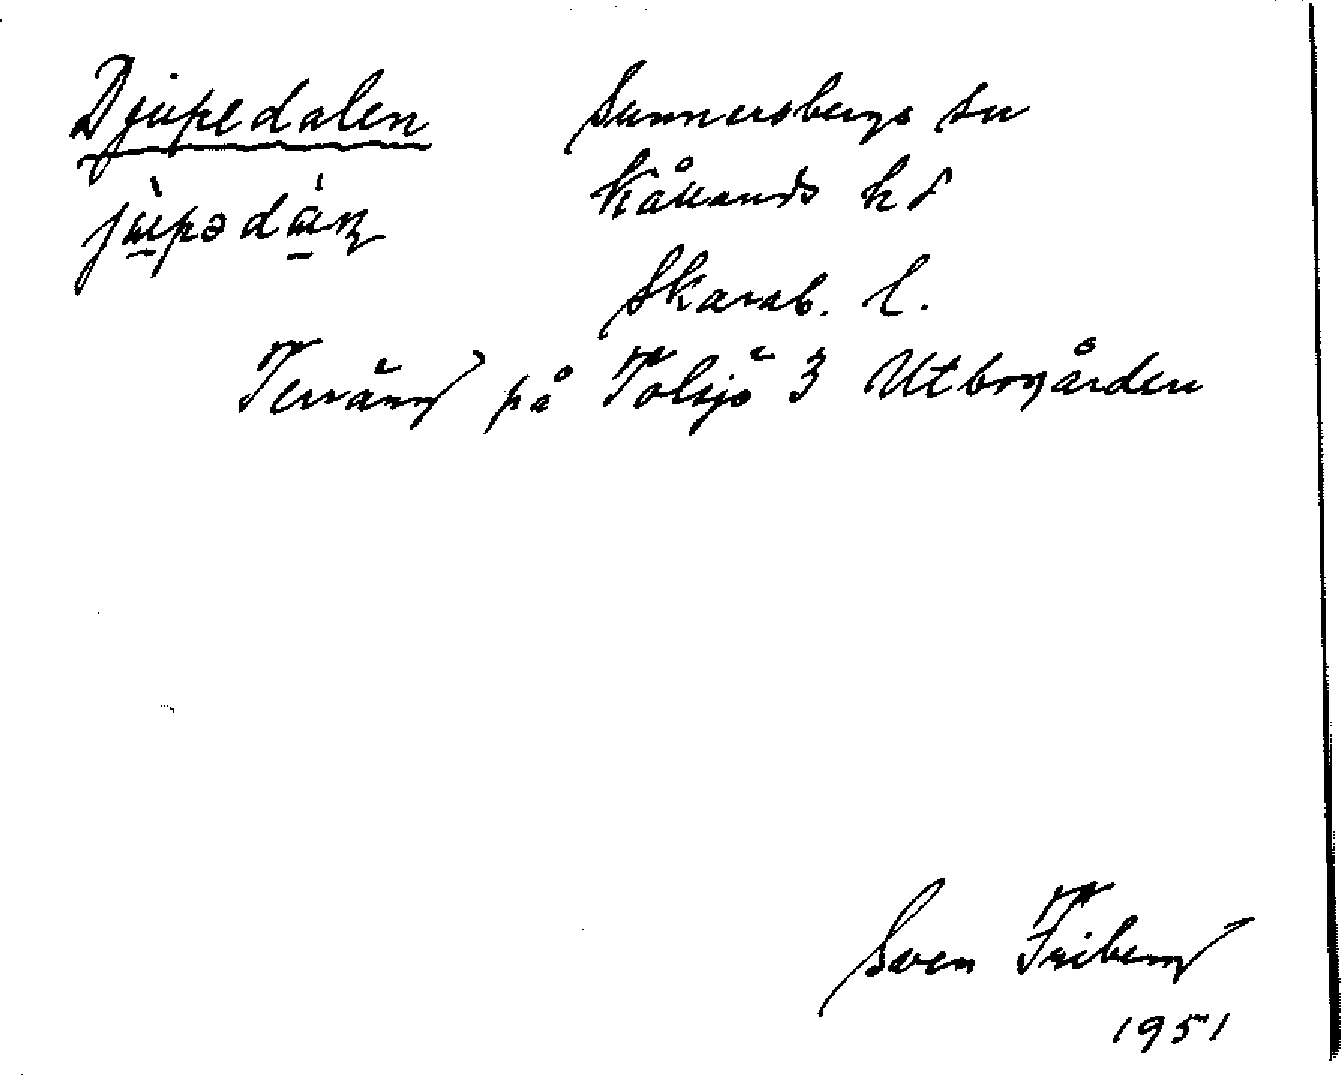 Djupedalen
Sunnersbergs sn
Kållands hd
Skarab. l.
Terräng på Tolsjö 3 Utbogården
Sven Friberg
1951